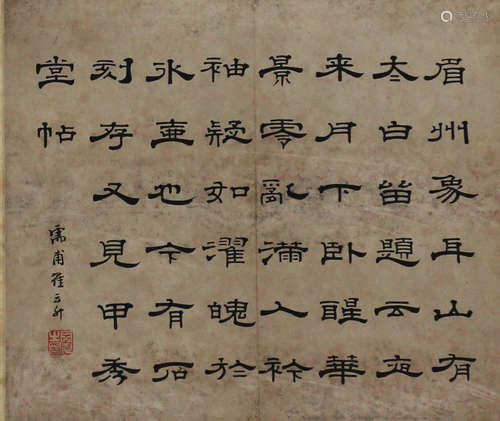 眉州象耳山有
太白留題云夜
来月下卧醒華
景零亂滿人衿
袖疑如濯魄於
氷壺也今有石
刻存又見甲秀
堂帖
甫